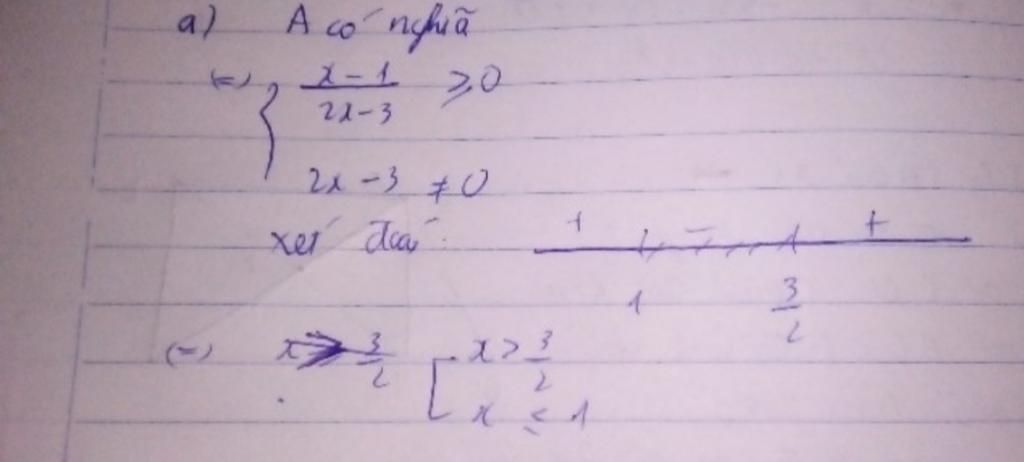 a) A có nghĩa
(=) { \frac{x-1}{2x-3} ≥ 0
2x-3 ≠ 0
xét dấu: + - +
1 \frac{3}{2}
(=) [ x > \frac{3}{2}
x ≤ 1